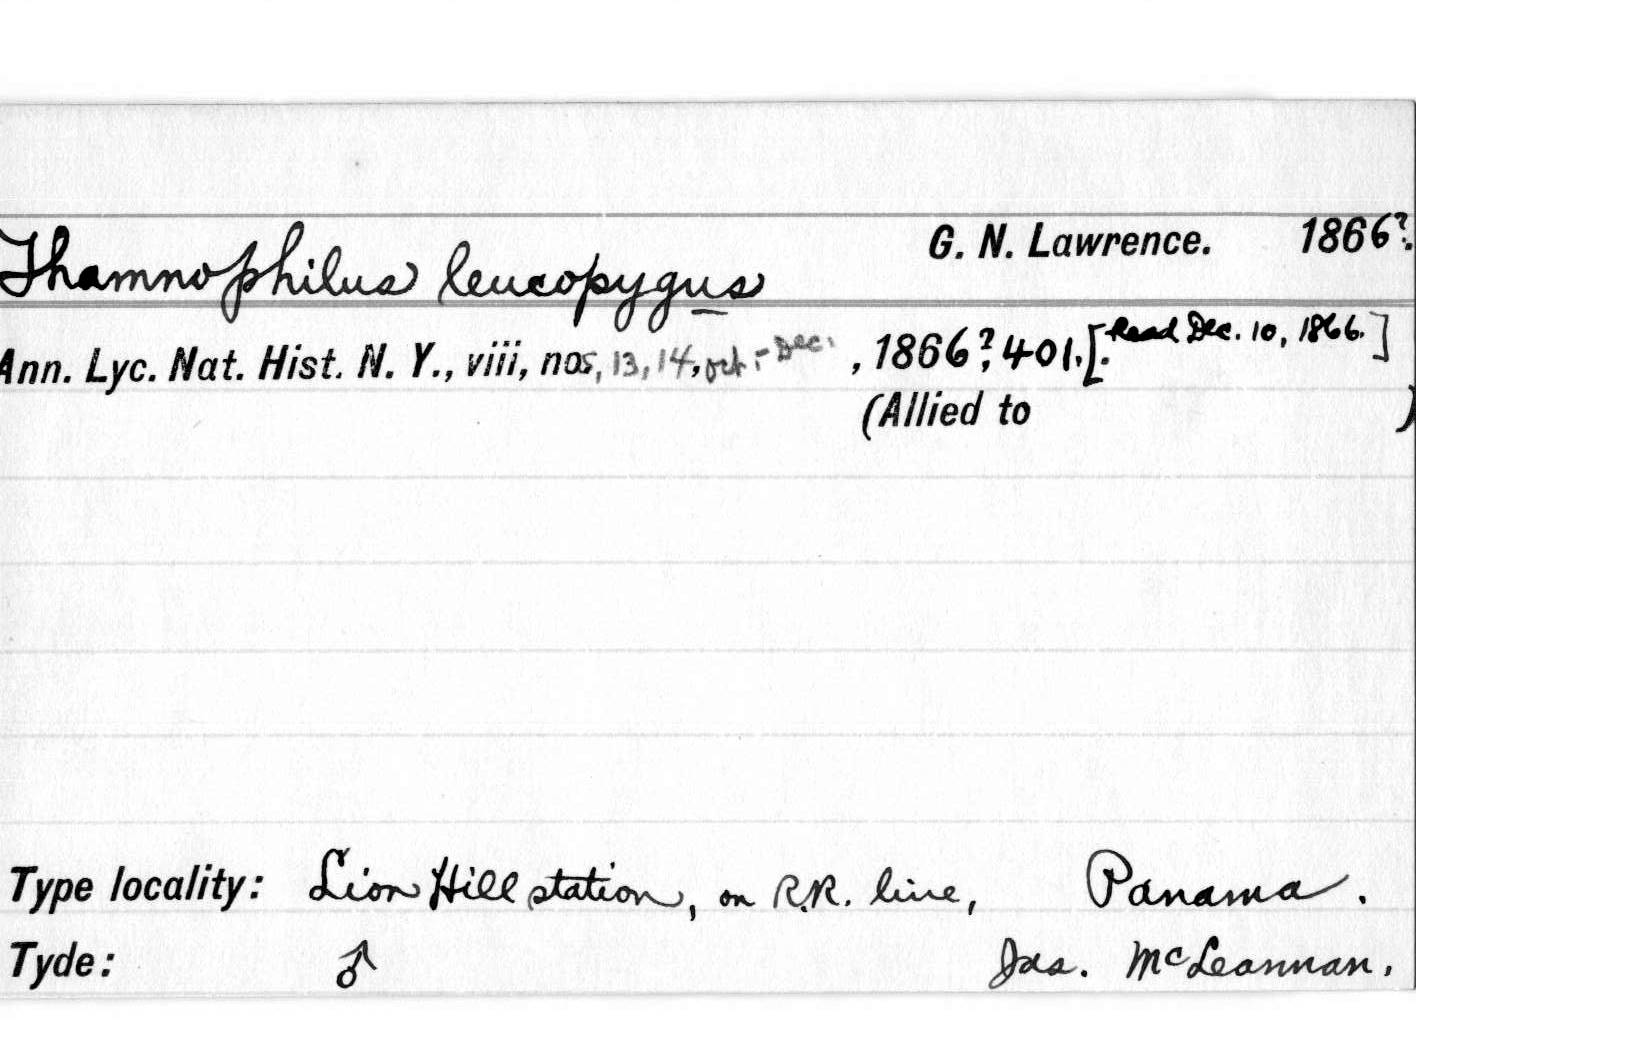 Thamnophilus leucopygus G. N. Lawrence. 1866?.
Ann. Lyc. Nat. Hist. N. Y., viii, nos, 13, 14, Oct.- Dec. , 1866?, 401. [Read Dec. 10, 1866.]
(Allied to )
Type locality: Lion Hill station, on R.R. line, Panama.
Tyde: ♂ Jas. McLeannan.